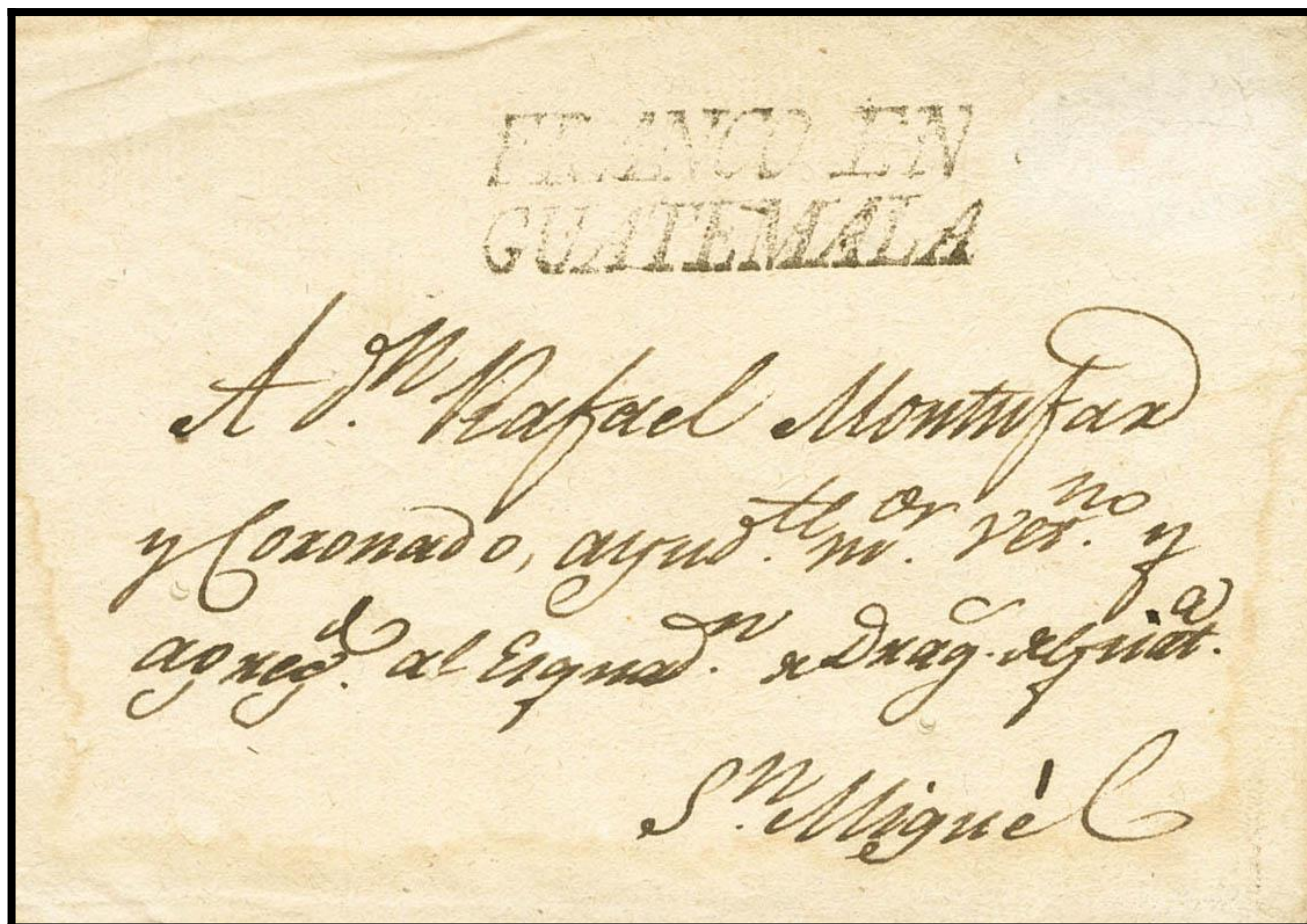 FRANCO. EN
GUATEMALA
A Dn. Rafael Montufar
y Coronado, ayudte. mor. Vetno. y
agregdo. al Esquadn. de Drags. de Guata.
Sn. Miguèl